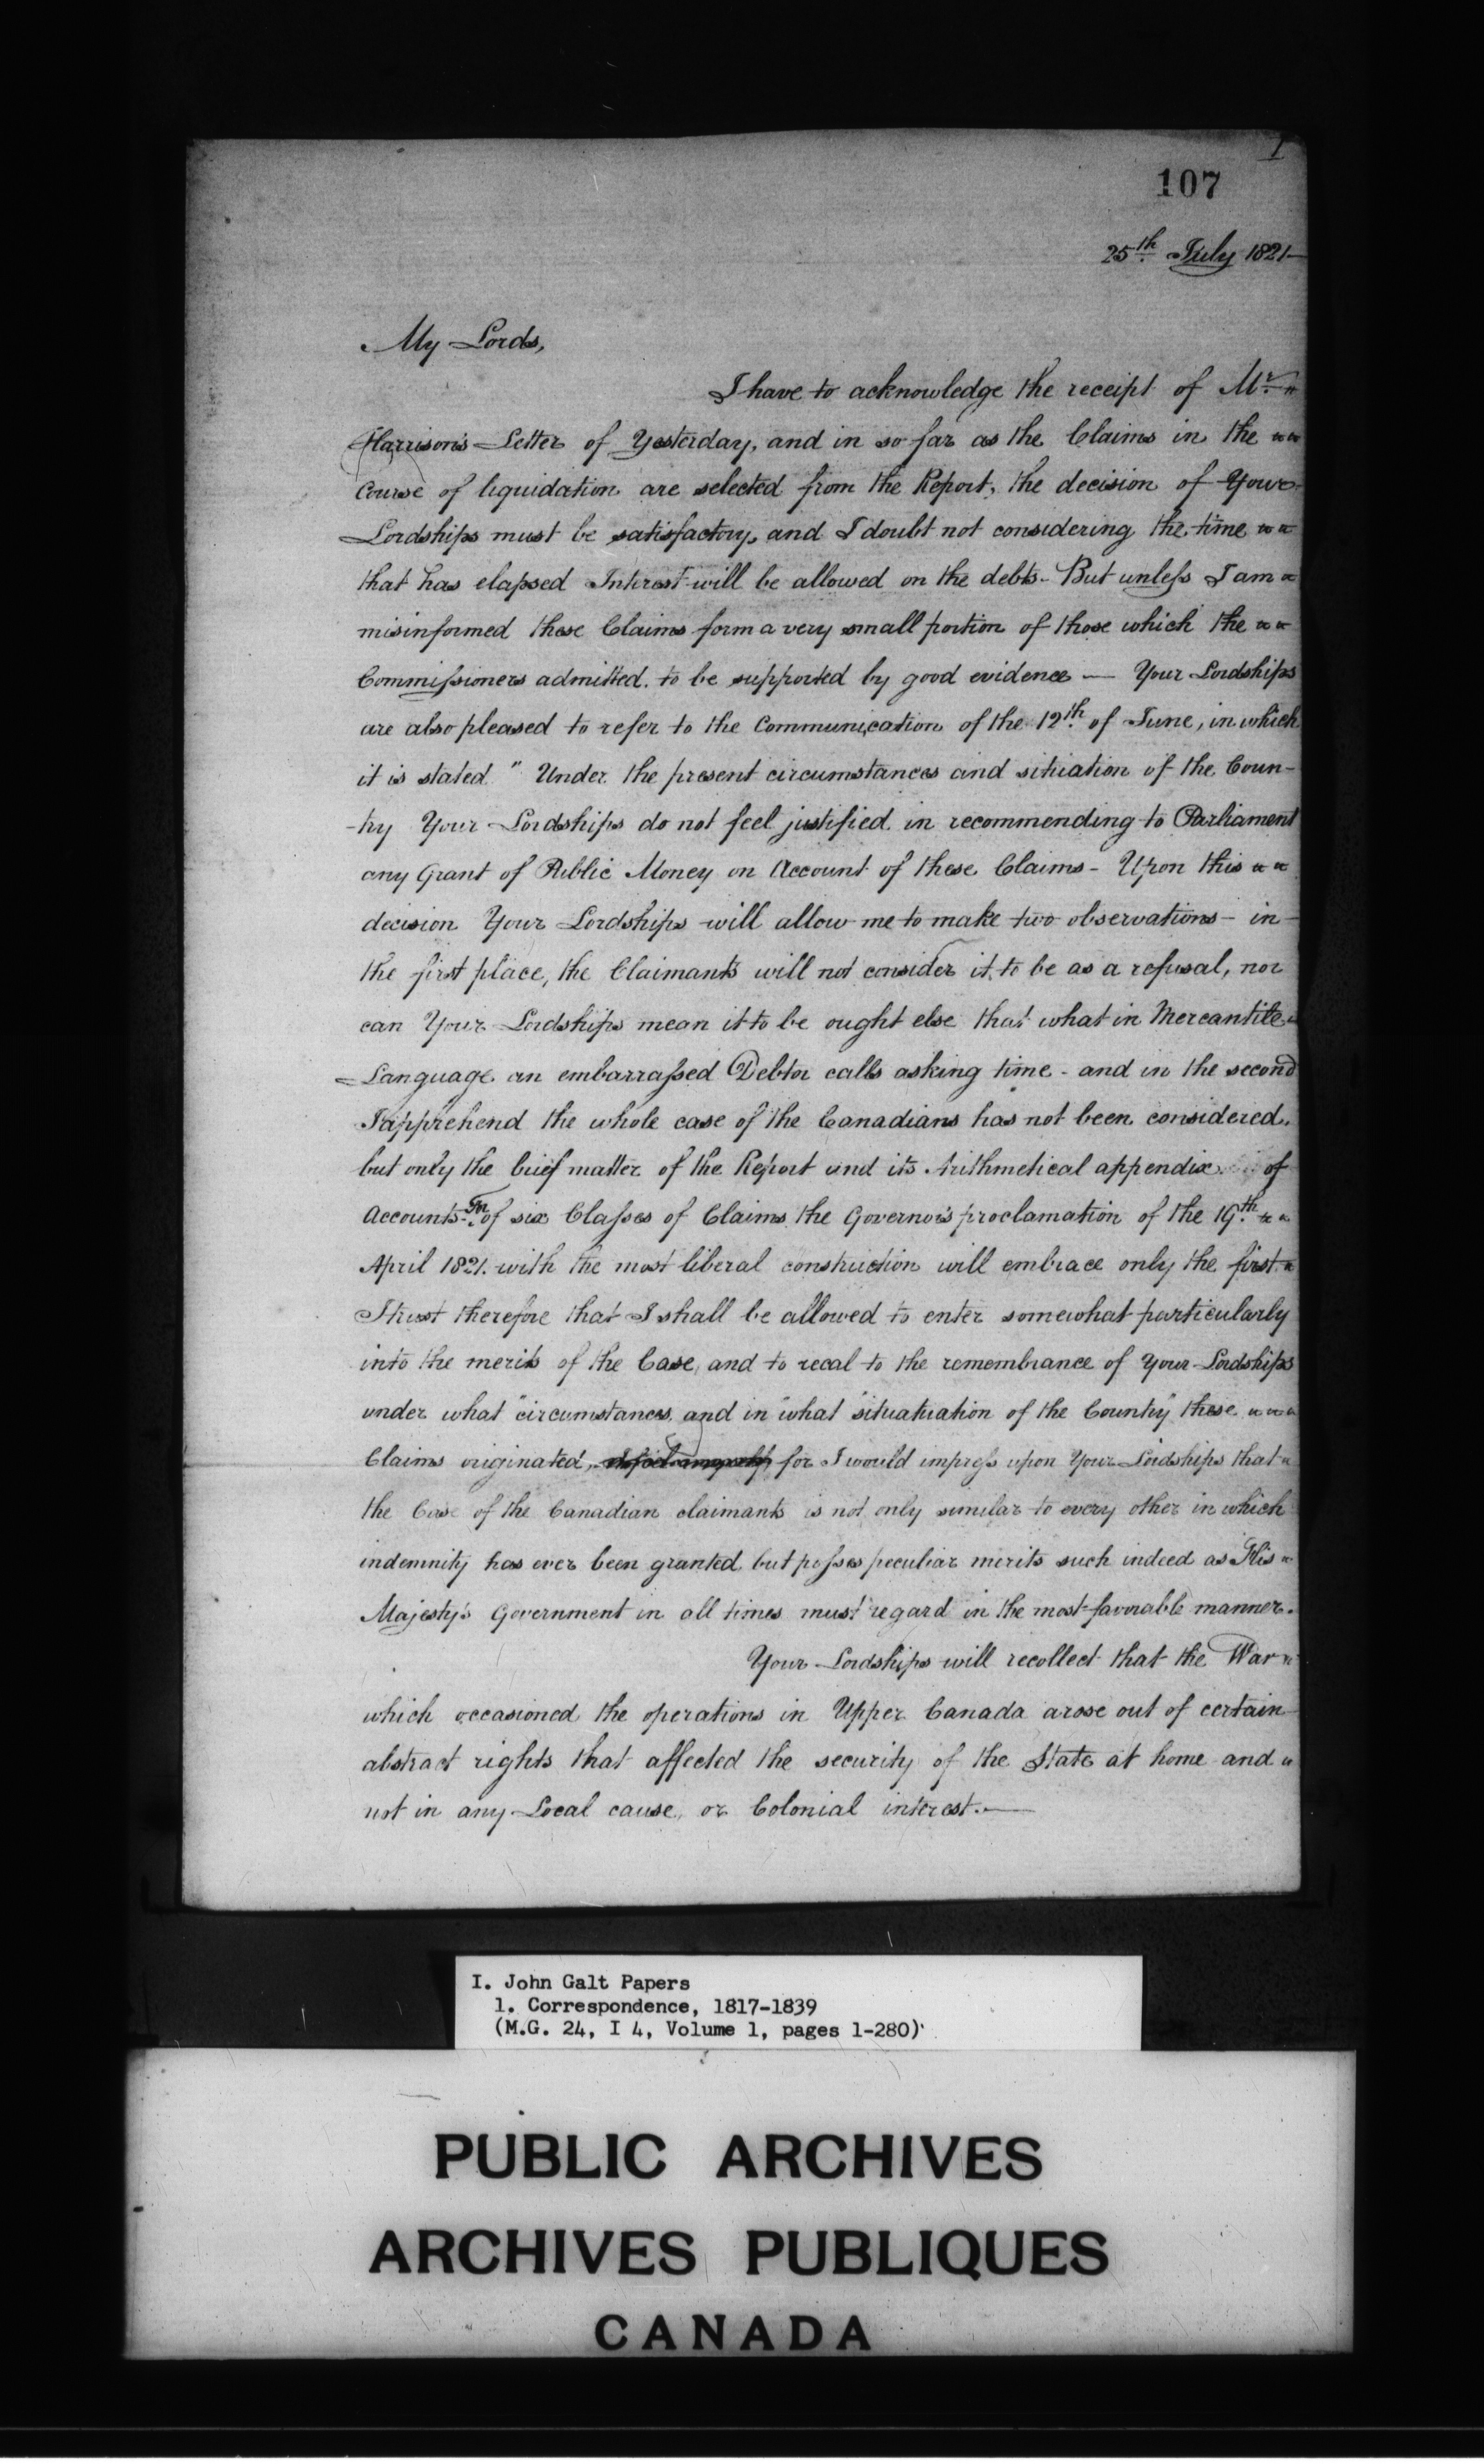 1
107
25th July 1821
My Lords,
I have to acknowledge the receipt of Mr.
Harrison's Letter of Yesterday, and in so far as the Claims in the
Course of liquidation are selected from the Report, the decision of Your
Lordships must be satisfactory, and I doubt not considering the time
that has elapsed Interest will be allowed on the debts - But unless I am
misinformed these Claims form a very small portion of those which the
Commissioners admitted. to be supported by good evidence — Your Lordships
are also pleased to refer to the Communication of the 12th of June, in which
it is stated " Under the present circumstances and situation of the Coun-
-try Your Lordships do not feel justified in recommending to Parliament
any Grant of Public Money on Account of these Claims - Upon this
decision Your Lordships will allow me to make two observations - in
the first place, the Claimants will not consider it to be as a refusal, nor
can Your Lordships mean it to be ought else that what in Mercantile
Language an embarrassed Debtor calls asking time - and in the second
I apprehend the whole case of the Canadians has not been considered,
but only the brief matter of the Report and its Arithmetical appendix of
Accounts. For of six Classes of Claims the Governor's proclamation of the 19th
April 1821. with the most liberal construction will embrace only the first
I trust therefore that I shall be allowed to enter somewhat particularly
into the merits of the Case, and to recal to the remembrance of Your Lordships
under what "circumstances and in "what "situatuation of the Country" these
Claims originated, for I would impress upon Your Lordships that
the Case of the Canadian claimants is not only similar to every other in which
indemnity has ever been granted but posses peculiar merits such indeed as His
Majesty's Government in all times must regard in the most favorable manner.
Your Lordships will recollect that the War
which occasioned the operations in Upper Canada arose out of certain
abstract rights that affected the security of the State at home and
not in any Local cause, or Colonial interest.—
I. John Galt Papers
1. Correspondence, 1817-1839
(M.G. 24, I 4, Volume 1, pages 1-280)
PUBLIC ARCHIVES
ARCHIVES PUBLIQUES
CANADA